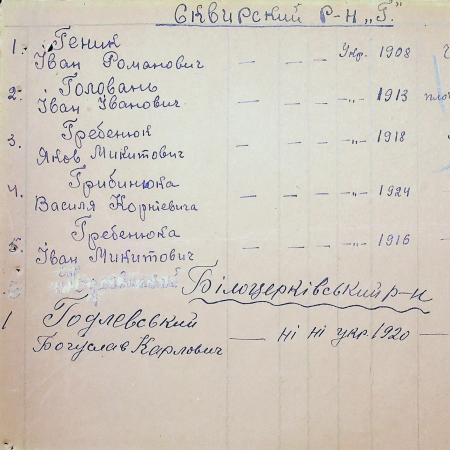 Сквирский р-н „Г".
1. Геник
Іван Романович — — — Укр. 1908
2. Головань
Іван Іванович — — — -„- 1913
3. Гребенюк
Яков Микитович — — — -„- 1918
4. Грибинюка
Василя Корнієвича — — — -„- 1924
Гребенюка
5. Іван Микитович — — — -„- 1916 —
Білоцерківський р-н
1 Годлевський
Богуслав Карлович — ні ні укр. 1920 —